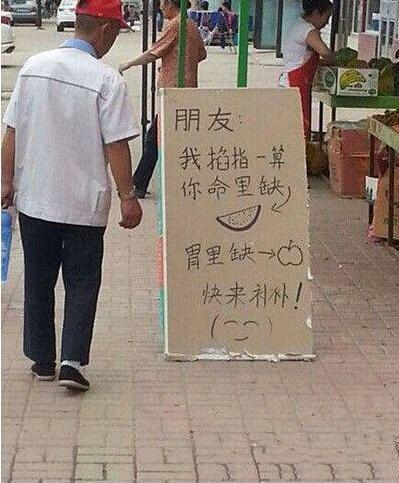 朋友:
我掐指一算
你命里缺
胃里缺→
快来补补!
(⌒⌣⌒)